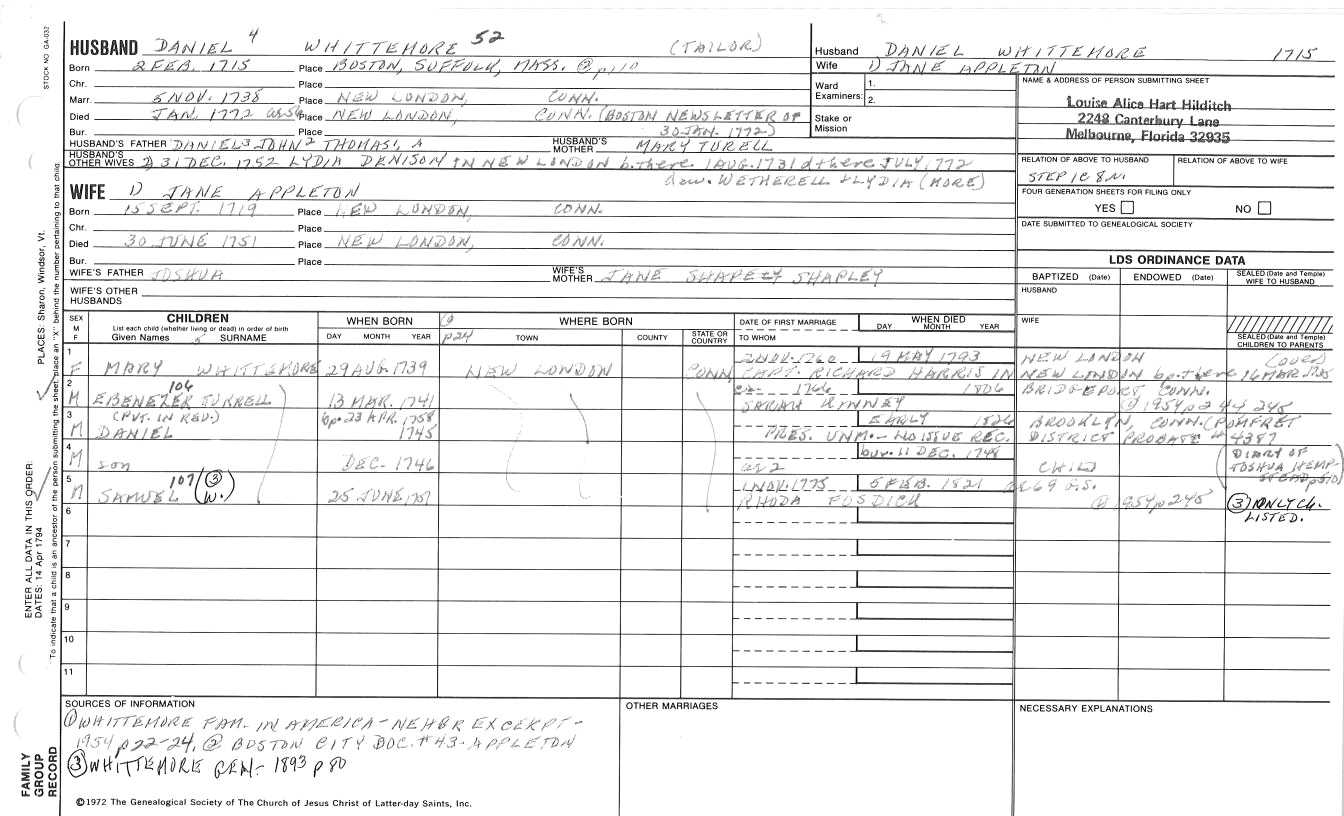 STOCK NO GA-032
HUSBAND DANIEL 4 WHITTEMORE 52 (TAILOR)
Born 2 FEB. 1715 Place BOSTON, SUFFOLK, MASS. ② p110
Chr. Place
Marr. 5 NOV. 1738 Place NEW LONDON, CONN.
Died JAN. 1772 ae 56 Place NEW LONDON, CONN. (BOSTON NEWSLETTER OF
Bur. Place 30 JAN. 1772)
HUSBAND'S FATHER DANIEL 3 JOHN 2 THOMAS, A HUSBAND'S MOTHER MARY TURELL
HUSBAND'S OTHER WIVES 2) 31 DEC. 1752 LYDIA DENISON IN NEW LONDON b. there 1 AUG. 1731 d there JULY 1772
dau. WETHERELL & LYDIA (MORE)
WIFE 1) JANE APPLETON
Born 15 SEPT. 1719 Place NEW LONDON, CONN.
Chr. Place
Died 30 JUNE 1751 Place NEW LONDON, CONN.
Bur. Place
WIFE'S FATHER JOSHUA WIFE'S MOTHER JANE SHAPELY SHAPLEY
WIFE'S OTHER HUSBANDS
Husband DANIEL WHITTEMORE 1715
Wife 1) JANE APPLETON
Ward Examiners: 1.
2.
Stake or Mission
NAME & ADDRESS OF PERSON SUBMITTING SHEET
Louise Alice Hart Hilditch
2248 Canterbury Lane
Melbourne, Florida 32935
RELATION OF ABOVE TO HUSBAND RELATION OF ABOVE TO WIFE
STEP 1C 8N.
FOUR GENERATION SHEETS FOR FILING ONLY
YES NO
DATE SUBMITTED TO GENEALOGICAL SOCIETY
LDS ORDINANCE DATA
BAPTIZED (Date) ENDOWED (Date) SEALED (Date and Temple) WIFE TO HUSBAND
HUSBAND
WIFE
SEALED (Date and Temple) CHILDREN TO PARENTS
SEX M F
CHILDREN
List each child (whether living or dead) in order of birth
Given Names 5 SURNAME
WHEN BORN
DAY MONTH YEAR
p24
WHERE BORN
TOWN COUNTY STATE OR COUNTRY
DATE OF FIRST MARRIAGE
TO WHOM
WHEN DIED
DAY MONTH YEAR
1 2 NOV. 1760 19 MAY 1793 NEW LONDON (over)
F MARY WHITTEMORE 29 AUG. 1739 NEW LONDON CONN CAPT. RICHARD HARRIS IN NEW LONDON bp. there 16 MAR. 1735
2 106 1766 1806 BRIDGEPORT CONN.
M EBENEZER TURRELL 13 MAR. 1741 SARAH KINNEY ① 1954 p 244 245
3 (PVT. IN REV.) bp. 23 APR. 1758 EARLY 1826 BROOKLYN, CONN. (POMFRET
M DANIEL 1745 PRES. UNM. - NO ISSUE REC. DISTRICT PROBATE # 4387
4 bur. 11 DEC. 1748 DIARY OF
M son DEC. 1746 ae 2 CHILD JOSHUA HEMPSTEAD p510)
5 107 ③ 1 NOV. 1775 5 FEB. 1821 ae 69 G.S.
M SAMUEL (W.) 25 JUNE 1751 RHODA FOSDICK ① 1954 p 245 ③ ONLY CH. LISTED.
6
7
8
9
10
11
SOURCES OF INFORMATION
① WHITTEMORE FAM. IN AMERICA - NEHBR EXCERPT -
1954 p22-24, ② BOSTON CITY DOC. #43 - APPLETON
③ WHITTEMORE GEN - 1893 p 80
OTHER MARRIAGES
NECESSARY EXPLANATIONS
©1972 The Genealogical Society of The Church of Jesus Christ of Latter-day Saints, Inc.
FAMILY GROUP RECORD
ENTER ALL DATA IN THIS ORDER:
DATES: 14 Apr 1794
PLACES: Sharon, Windsor, Vt.
To indicate that a child is an ancestor of the person submitting the sheet, place an "X" behind the number pertaining to that child.